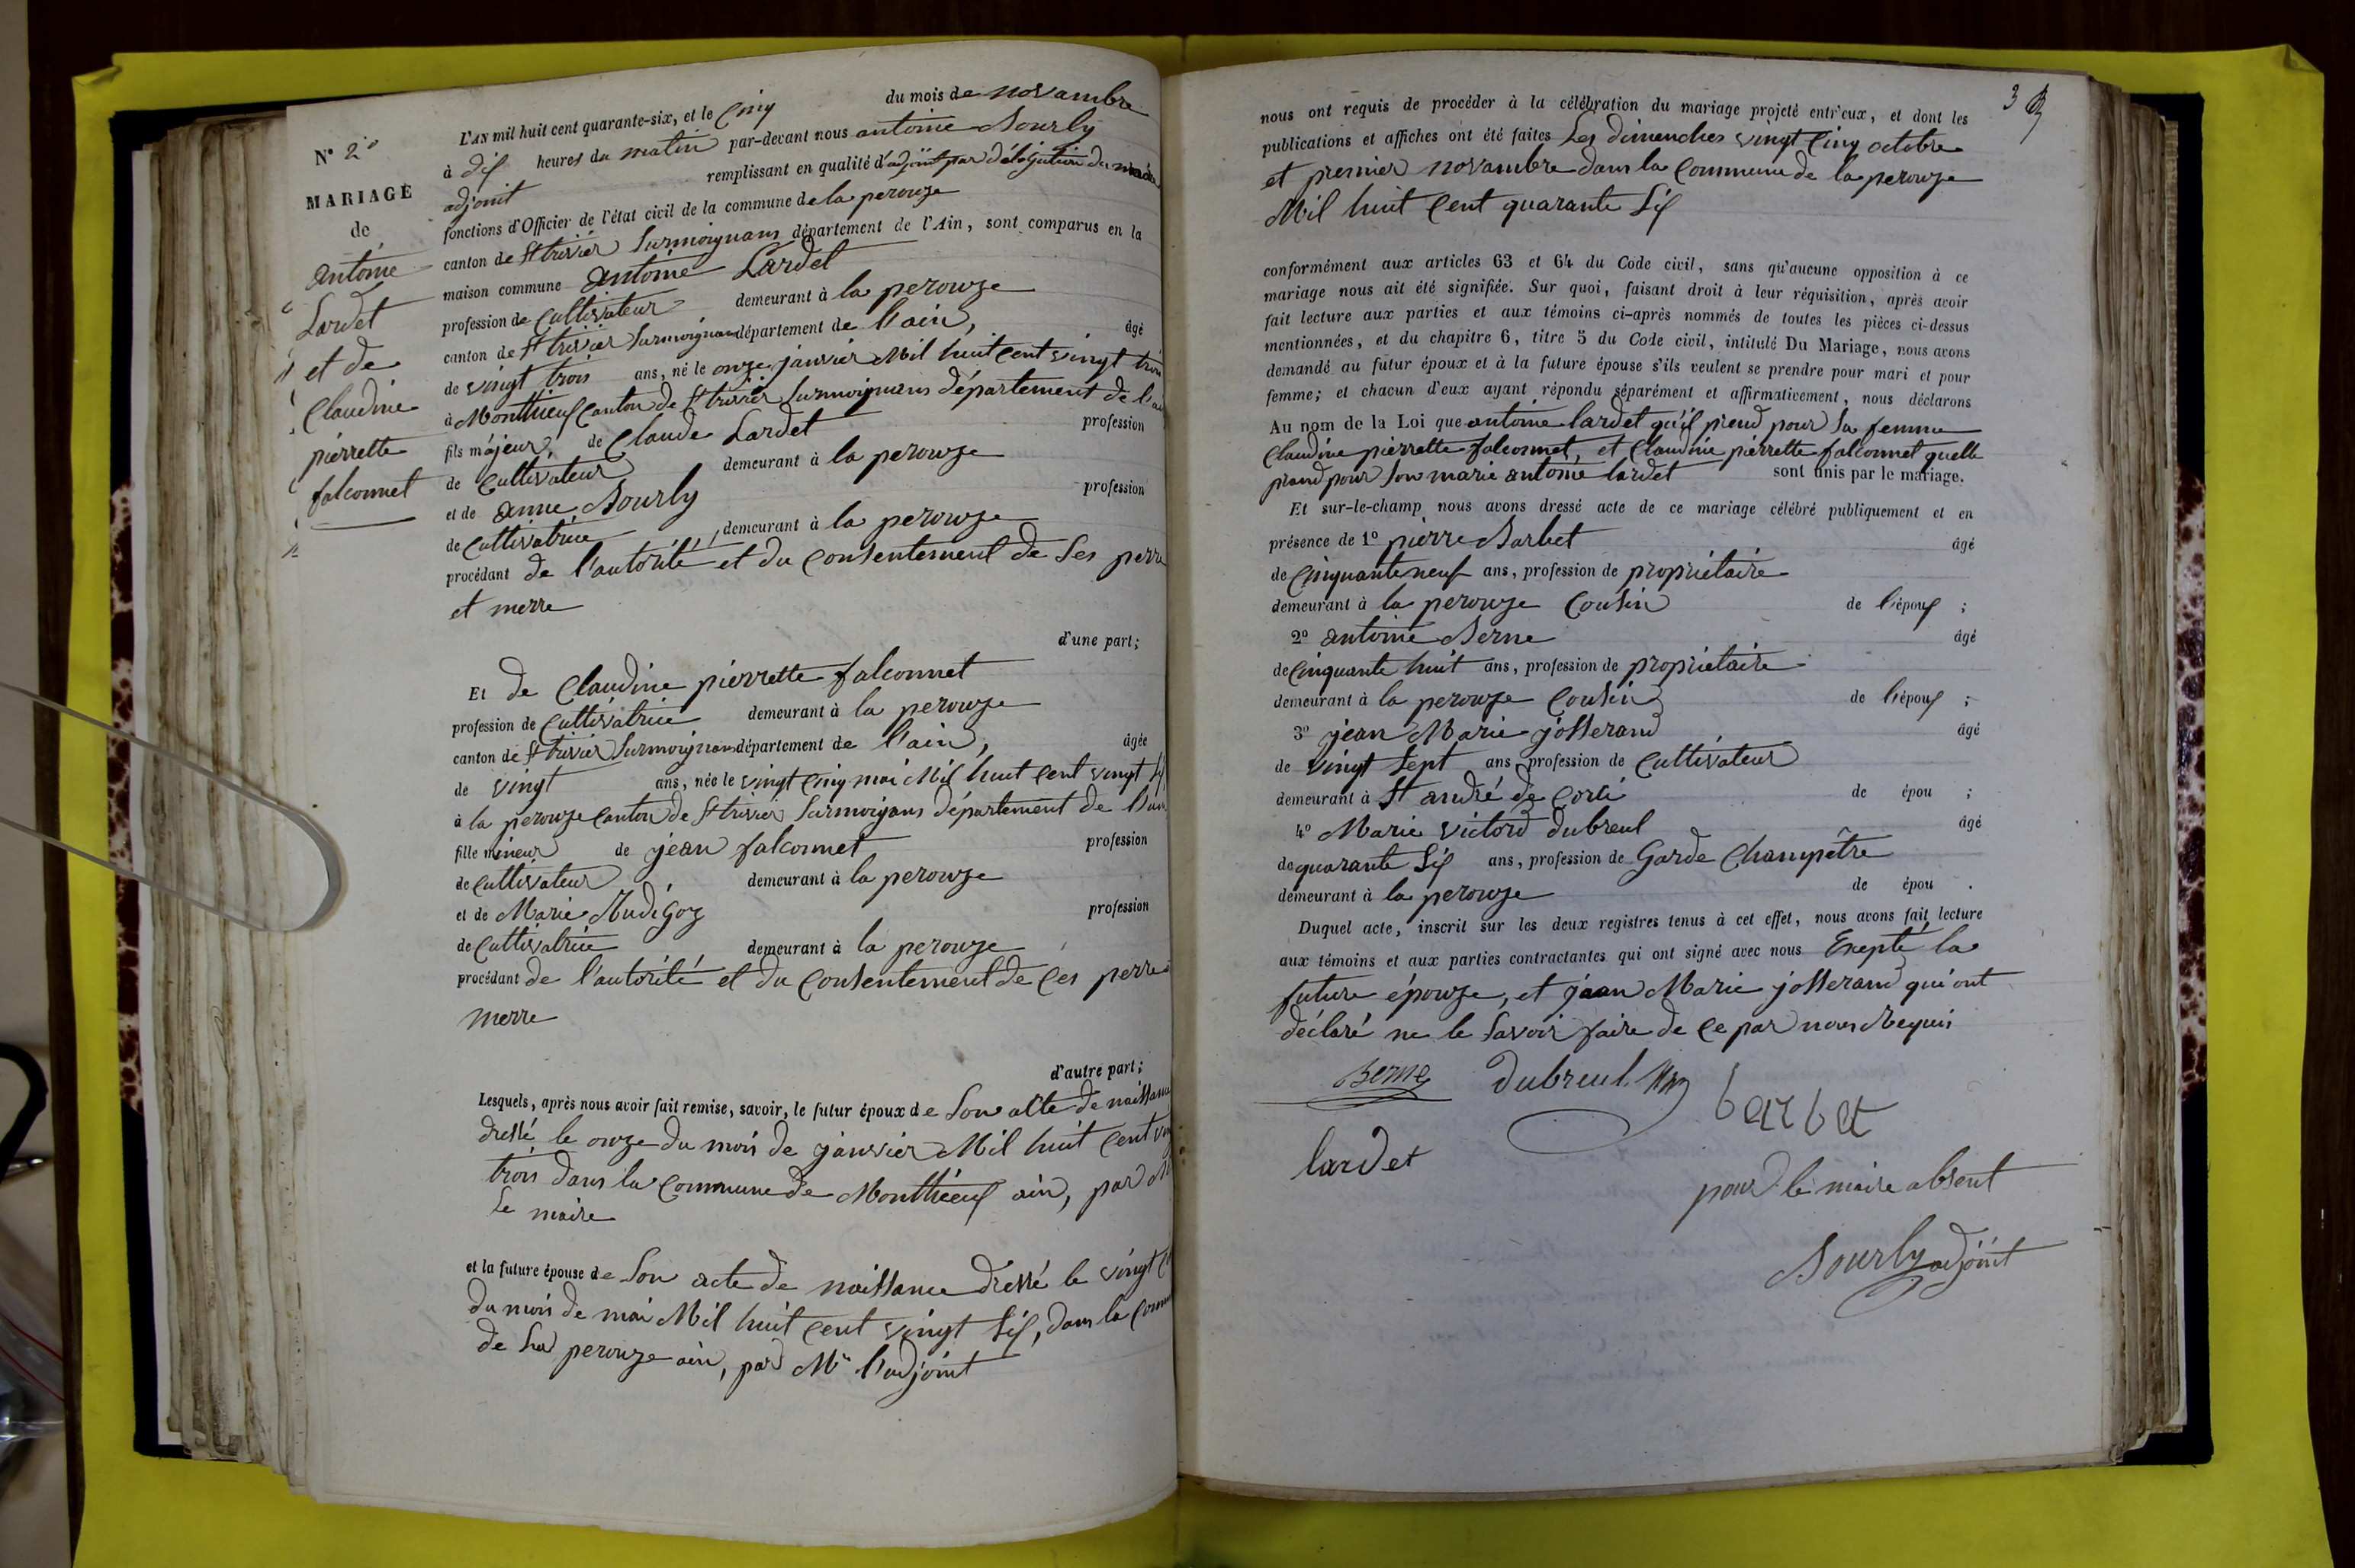 N° 2°
MARIAGE
de
antoine
Lardet
et de
Claudine
pierrette
falconnet
L'AN mil huit cent quarante-six, et le cinq du mois de novambre
à dix heures du matin par-devant nous antoine Bourly
adjoint remplissant en qualité d'adjoint par délégation du maire
fonctions d'Officier de l'état civil de la commune de la perouze
canton de St trivier Surmoignans département de l'Ain, sont comparus en la
maison commune antoine Lardet
profession de Cultivateur demeurant à la perouze
canton de St trivier Surmoignans département de l'ain, âgé
de vingt trois ans, né le onze janvier Mil huit cent vingt trois
à Monthieux Canton de St trivier Surmoignans département de l'ain
fils majeur, de Claude Lardet profession
de Cultivateur demeurant à la perouze
et de anne Bourly profession
de Cultivatrice demeurant à la perouze
procédant de l'autorité et du Consentement de Ses perre
et merre
d'une part;
Et de Claudine pierrette falconnet
profession de Cultivatrice demeurant à la perouze
canton de St trivier Surmoignans département de l'ain, âgée
de vingt ans, née le vingt cinq mai Mil huit cent vingt Six
à la perouze Canton de St trivier Surmoignans département de l'ain
fille mineur de jean falconnet profession
de Cultivateur demeurant à la perouze
et de Marie Rudigoz profession
de Cultivatrice demeurant à la perouze
procédant de l'autorité et du Consentement de Ces perre
merre
d'autre part;
Lesquels, après nous avoir fait remise, savoir, le futur époux de Son acte de naissance
dressé le onze du mois de janvier Mil huit Cent
trois dans la Commune de Monthieux ain, par
Le maire
et la future épouse de Son acte de naissance dressé le vingt
du mois de mai Mil huit Cent vingt Six, dans la
de La perouze ain, par Mr l'adjoint
3
nous ont requis de procéder à la célébration du mariage projeté entr'eux, et dont les
publications et affiches ont été faites Les dimenches vingt Cinq octobre
et premier novambre dans la Commune de la perouze
Mil huit Cent quarante Six
conformément aux articles 63 et 64 du Code civil, sans qu'aucune opposition à ce
mariage nous ait été signifiée. Sur quoi, faisant droit à leur réquisition, après avoir
fait lecture aux parties et aux témoins ci-après nommés de toutes les pièces ci-dessus
mentionnées, et du chapitre 6, titre 5 du Code civil, intitulé Du Mariage, nous avons
demandé au futur époux et à la future épouse s'ils veulent se prendre pour mari et pour
femme; et chacun d'eux ayant répondu séparément et affirmativement, nous déclarons
Au nom de la Loi que antoine lardet qu'il prend pour Sa femme
Claudine pierrette falconnet, et Claudine pierrette falconnet quelle
prend pour Son marie antoine lardet sont unis par le mariage.
Et sur-le-champ nous avons dressé acte de ce mariage célébré publiquement et en
présence de 1° pierre Barbet âgé
de Cinquante neuf ans, profession de propriétaire
demeurant à la perouze Cousin de l'époux ;
2° antoine Berne âgé
de Cinquante huit ans, profession de propriétaire
demeurant à la perouze Cousin de l'époux ;
3° jean Marie josserand âgé
de vingt Sept ans profession de Cultivateur
demeurant à St andré de Corci de épou ;
4° Marie victord dubreul âgé
de quarante Six ans, profession de Garde Champêtre
demeurant à la perouze de épou .
Duquel acte, inscrit sur les deux registres tenus à cet effet, nous avons fait lecture
aux témoins et aux parties contractantes qui ont signé avec nous Exepté la
future épouze, et jean Marie josserand qui ont
déclaré ne le Savoir faire de Ce par nous Requis
Berne dubreul barbet
lardet
pour le maire absent
Bourly adjoint